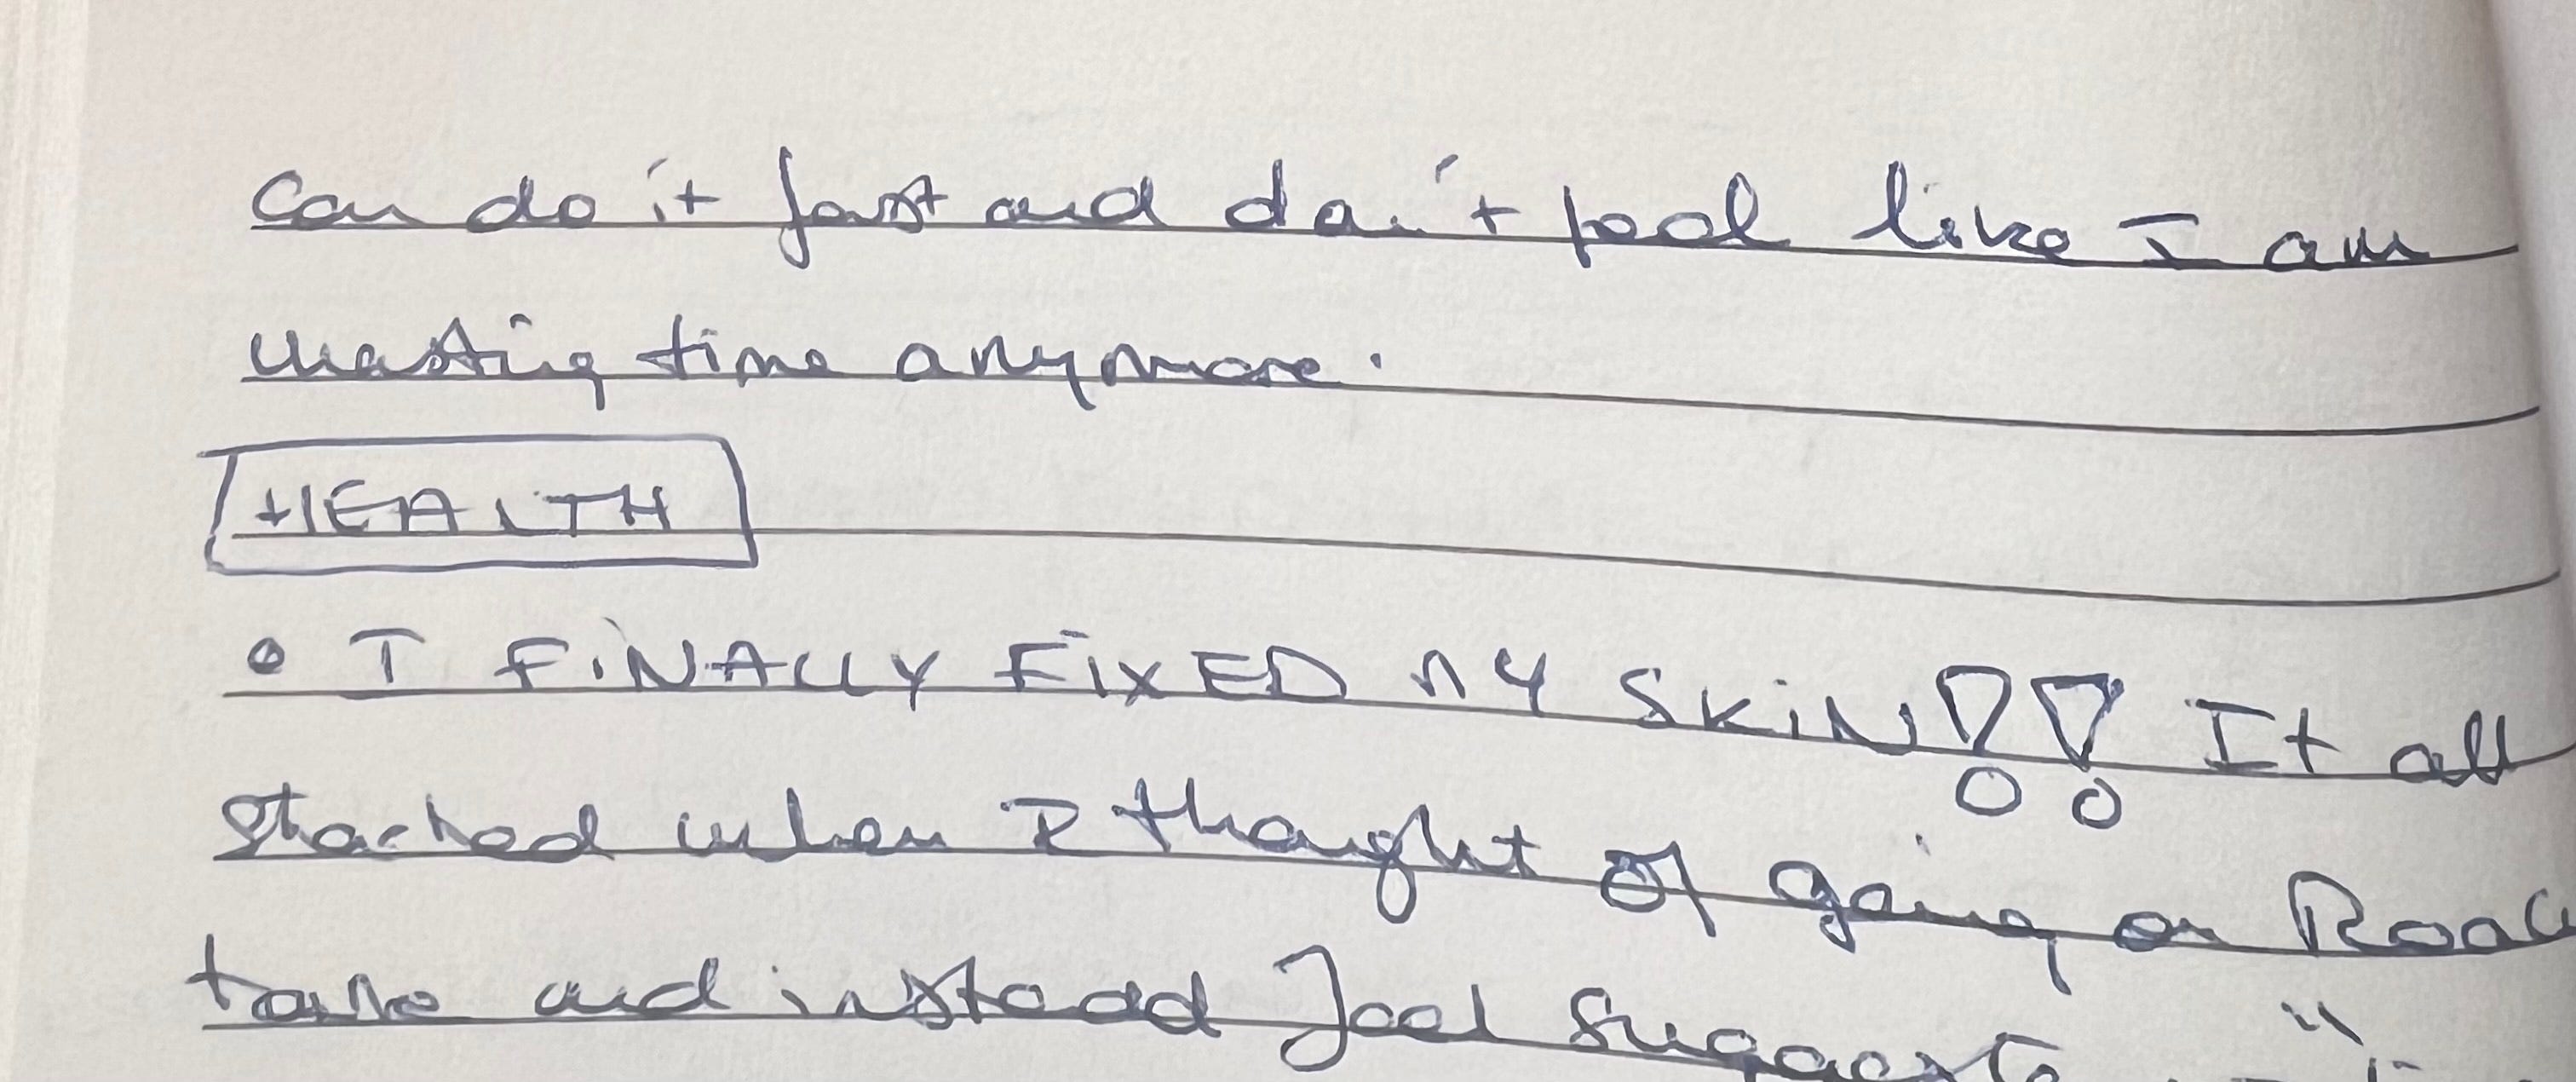 Can do it fast and don't feel like I am
wasting time anymore.
HEALTH
• I FiNALLY FiXED MY SKiN!! It all
started when I thought of going on Roac
tane and instead Joel